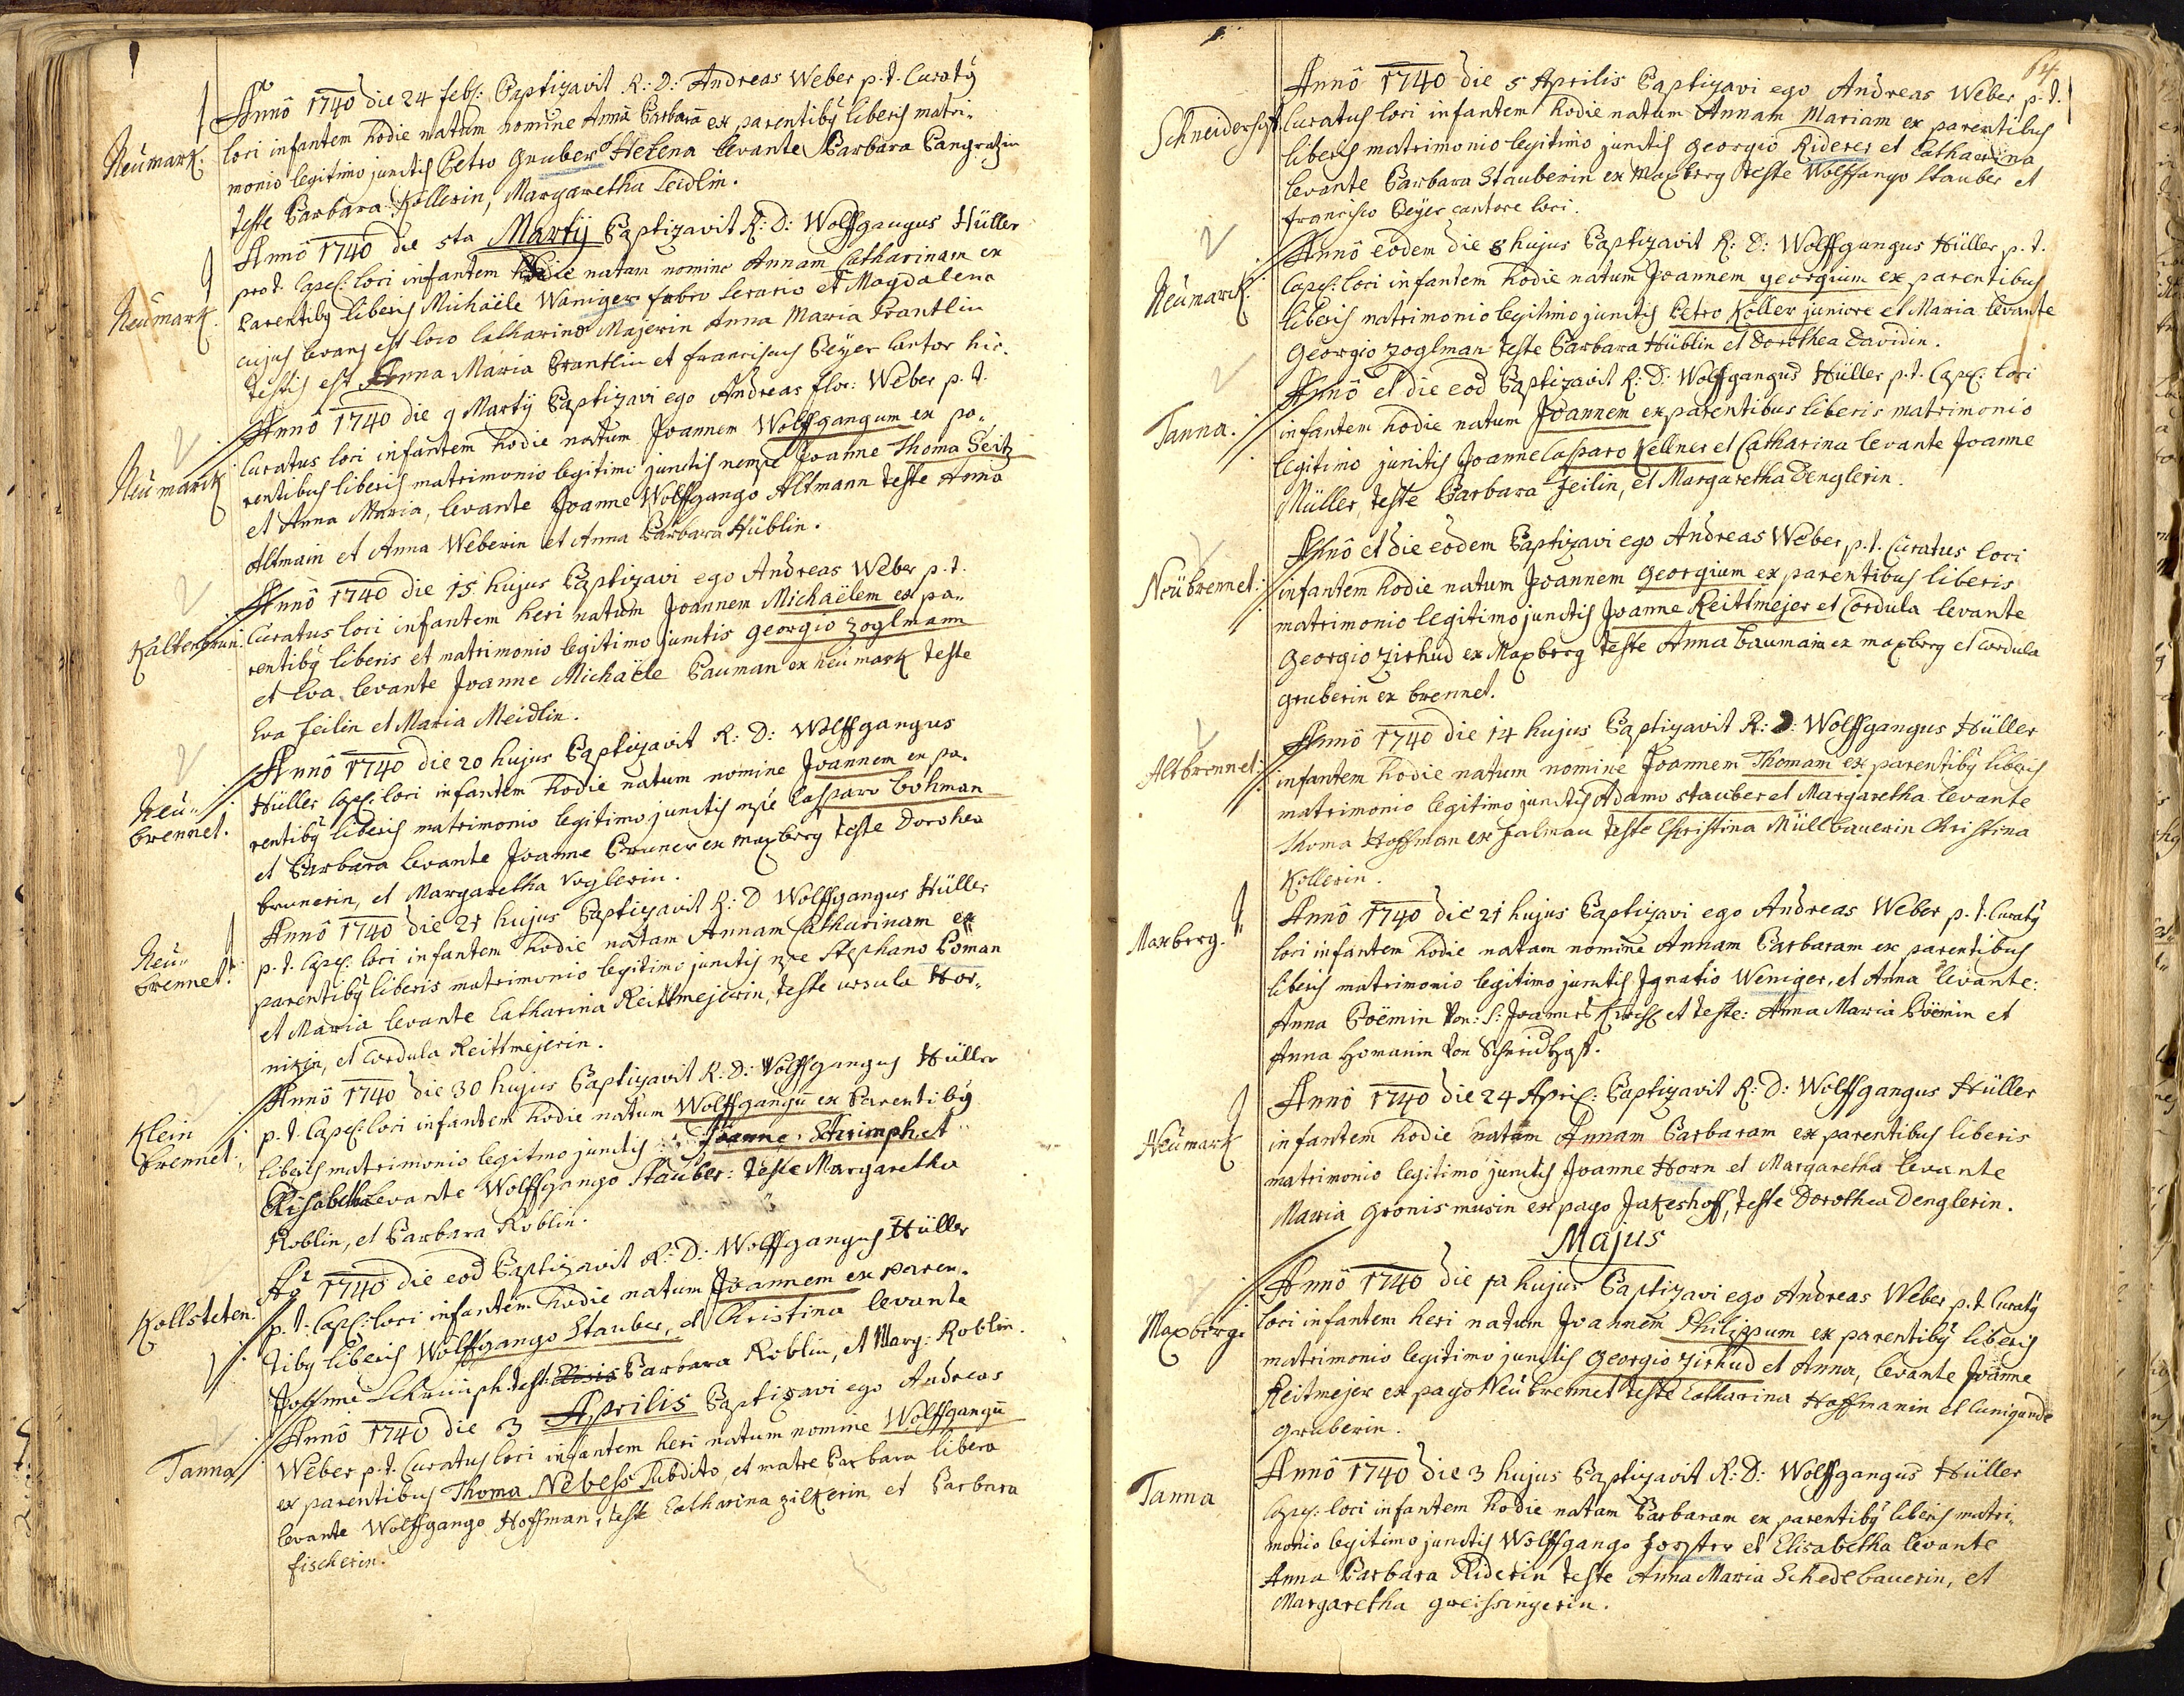 Neumark.
Annô 1740 die 24 feb: Baptizavit R: D: Andreas Weber p. t. Curatq
loci infantem hodie natam nomine Annā Barbarā ex parentibq liberis matri-
monio legitimo junctis Petro Gruber Helena levante Barbara Pangratzin
teste Barbara Kollerin, Margaretha Leidlin.
Neumark.
Annô 1740 die 5ta Martij Baptizavit R: D: Wolffgangus Hüller
pro t. Capel: loci infantem hodie natam nomine Annam Catharinam ex
Parentibq liberis Michaële Waniger fabro serario et Magdalena
cujus levans est loco Catharina Majerin Anna Maria Brantlin
testis est Anna Maria Brantlin et franciscus Beÿer Cantor hic.
Neumarck
Annô 1740 die 9 Martij Baptizavi ego Andreas flor: Weber p. t.
Curatus loci infantem hodie natum Joannem Wolffgangum ex pa-
rentibus liberis matrimonio legitimo junctis nempe Joanne Thoma Seitz
et Anna Maria, levante Joanne Wolffgango Altmann teste Anna
Altmain et Anna Weberin et Anna Barbara Hüblin.
Kaltenbrun:
Annô 1740 die 15 hujus Baptizavi ego Andreas Weber p. t.
Curatus loci infantem heri natum Joannem Michaëlem ex pa-
rentibq liberis et matrimonio legitimo junctis georgio Zoglmann
et Eva levante Joanne Michaële Bauman ex neumark teste
Eva feilin et Maria Meidlin.
Neu-
brennet.
Annô 1740 die 20 hujus Baptizavit R: D: Wolffgangus
Hüller Capel: loci infantem hodie natum nomine Joannem ex pa-
rentibq liberis matrimonio legitimo junctis npe Casparo bohman
et Barbara levante Joanne Bruner ex maxberg teste Dorothea
brunerin, et Margaretha Voglerin.
Neu-
brennet.
Annô 1740 die 21 hujus Baptizavit R: D Wolffgangus Hüller
p. t. Capel: loci infantem hodie natam Annam Catharinam ex
parentibq liberis matrimonio legitimo junctis npe Stephano Boman
et Maria levante Catharina Reittmejerin, teste ursula Hor-
nizin, et Cordula Reittmejerin.
Klein
brennet:
Annô 1740 die 30 hujus Baptizavit R: D: Wolffgangus Hüller
p. t. Capel: loci infantem hodie natum Wolffgangū ex Parentibq
liberis matrimonio legitmo junctis Joanne Schrimph, et
Elisabetha levante Wolffgango Stauber: teste Margaretha
Roblin, et Barbara Roblin.
Kollsteten.
Aº 1740 die eod Baptizavit R: D: Wolffgangus Hüller
p. t. Capel: loci infantem hodie natum Joannem ex paren-
tibq liberis Wolffgango Stauber, et Christina levante
Joanne Schrimph: test: Barbara Roblin, et Marg: Roblin.
Tanna
Annô 1740 die 3 Aprilis Baptizavi ego Andreas
Weber p. t. Curatus loci infantem heri natum nomine Wolffgangū
ex parentibus Thoma Nebess subdito, et matre Barbara libera
levante Wolffgango Hoffman, teste Catharina Zilkerin et Barbara
fischerin.
64
Annô 1740 die 5 Aprilis Baptizavi ego Andreas Weber p. t.
Curatus loci infantem hodie natum Annam Mariam ex parentibus
liberis matrimonio legitimo junctis georgio Riderer et Catharina
levante Barbara Stauberin ex Maxberg teste Wolffango Stauber et
francisco Beÿer cantore loci.
Neumarck.
Annô eodem die 8 hujus Baptizavit R: D: Wolffgangus Hüller p. t.
Capel: loci infantem hodie natum Joannem georgium ex parentibus
liberis matrimonio legitimo junctis Petro Koller juniore et Maria levante
Georgio Zoglman teste Barbara Hüblin et Dorothea Davidin.
Tanna.
Annô et die eod Baptizavit R: D: Wolffgangus Hüller p. t. Capel: loci
infantem hodie natum Joannem ex parentibus liberis matrimonio
legitimo junctis Joanne Casparo Kellner et Catharina levante Joanne
Müller teste Barbara Zeilin, et Margaretha Denglerin.
Neübrennet:
Annô et die eodem Baptizavi ego Andreas Weber p. t. Curatus loci
infantem hodie natum Joannem georgium ex parentibus liberis
matrimonio legitimo junctis Joanne Reittmejer et Cordula levante
Georgio Zirhud ex Maxberg teste Anna baumain ex maxberg et Cordula
gruberin ex brennet.
Altbrennet:
Annô 1740 die 14 hujus Baptizavit R: D: Wolffgangus Hüller
infantem hodie natum nomine Joannem Thomam ex parentibq liberis
matrimonio legitimo junctis Adamo stauber et Margaretha levante
Thoma Hoffman ex falmau teste Christina Müllbauerin Christina
Kollerin.
Maxberg.
Annô 1740 die 21 hujus Baptizavi ego Andreas Weber p. t. Curatq
loci infantem hodie natam nomine Annam Barbaram ex parentibus
liberis matrimonio legitimo junctis Ignatio Weniger, et Anna levante:
Anna Boëmin Von: S: Joannes et teste: Anna Maria Boëmin et
Anna Homanin Von
Neumark
Annô 1740 die 24 April: Baptizavit R: D: Wolffgangus Hüller
infantem hodie natam Annam Barbaram ex parentibus liberis
matrimonio legitimo junctis Joanne Horn et Margaretha levante
Maria Gronismusin ex pago Jakeshoff, teste Dorothea Denglerin.
Majus
Maxberg.
Annô 1740 die 1a hujus Baptizavi ego Andreas Weber p. t. Curatq
loci infantem heri natum Joannem Philippum ex parentibq liberis
matrimonio legitimo junctis georgio Zirhud et Anna, levante Joanne
Reitmejer ex pago Neubrennet teste Catharina Hoffmanin et Cunigunde
gruberin.
Tanna
Annô 1740 die 3 hujus Baptizavit R: D: Wolffgangus Hüller
Capel: loci infantem hodie natam Barbaram ex parentibq liberis matri-
monio legitimo junctis Wolffgango forster et Elisabetha levante
Anna Barbara Riderin teste Anna Maria Schedlbauerin, et
Margaretha greissingerin.